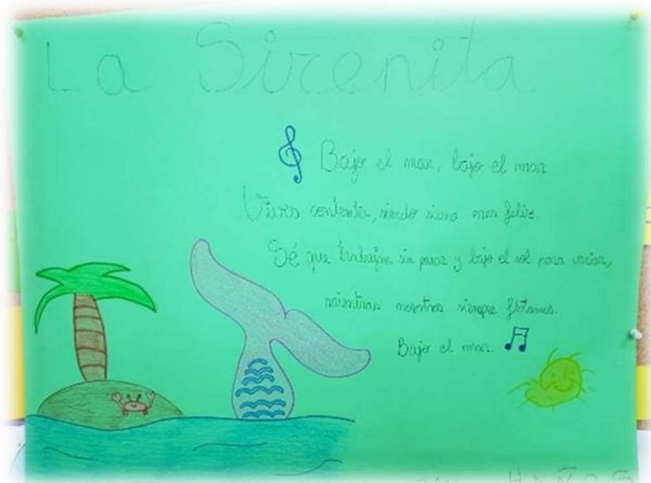 La Sirenita
Bajo el mar, bajo el mar
Vives contenta, siendo sirena eres feliz.
Sé que trabajan sin parar y bajo el sol para variar,
mientras nosotros siempre flotamos.
Bajo el mar.